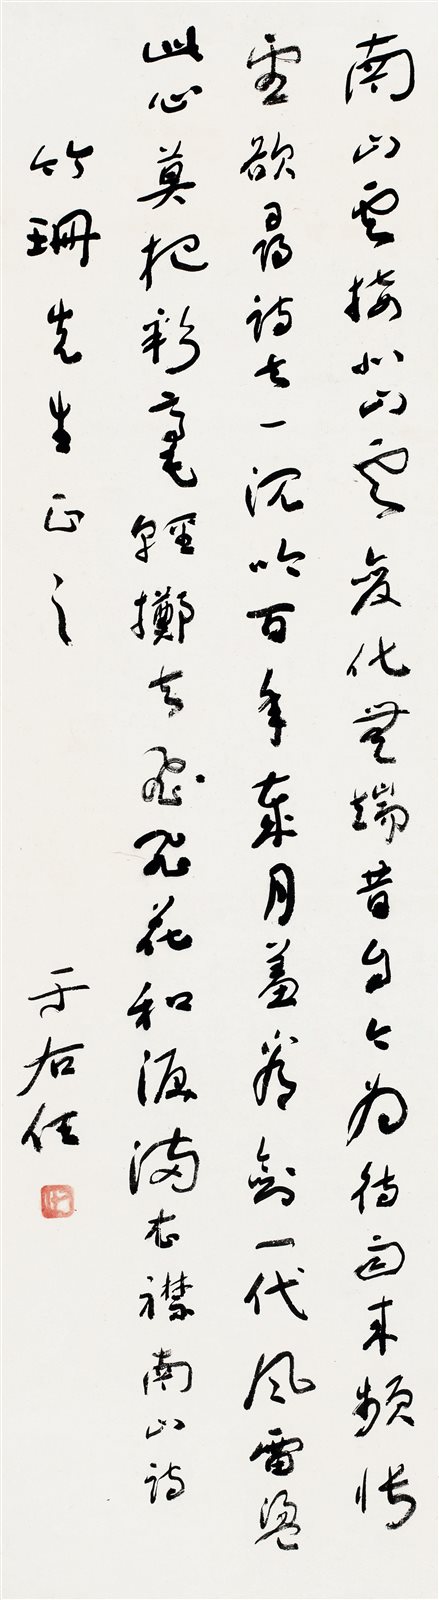 南山雲接北山雲變化無端昔自今為待雨來頻悵
望欲尋詩去一沉吟百年歲月羞看劍一代風雷盪
此心莫把彩毫輕擲去飛飛花和淚滿衣襟南山詩
竹珊先生正之
于右任